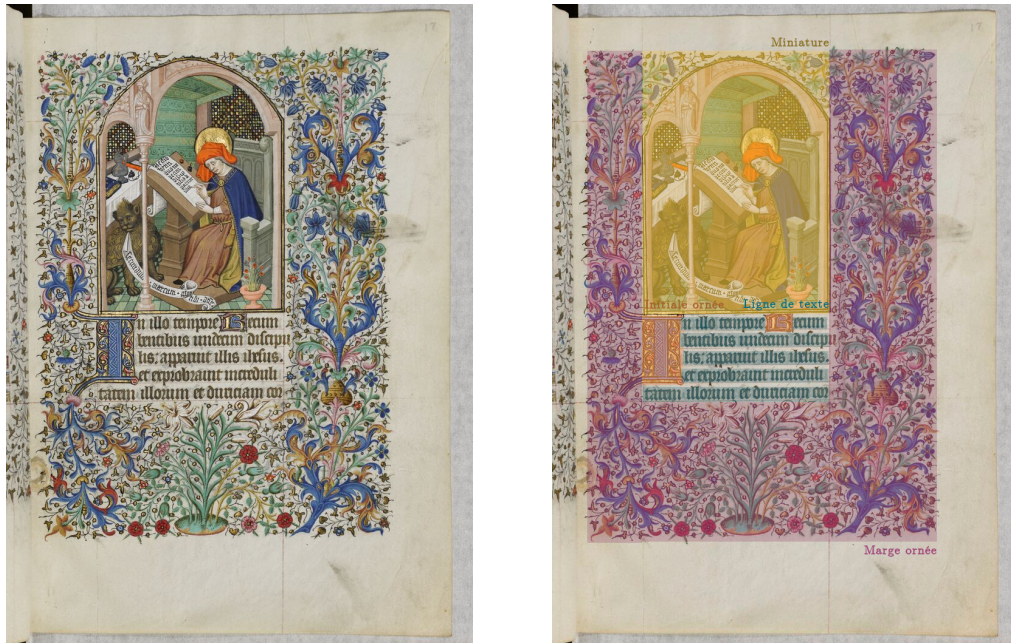 In illo tempore Recum
bentibus undecim discipu
lis: apparuit illis ihesus.
et exprobrauit increduli
tatem illorum et duriciam cor
Miniature
Initiale ornée Ligne de texte
In illo tempore Recum
bentibus undecim discipu
lis: apparuit illis ihesus.
et exprobrauit increduli
tatem illorum et duriciam cor
Marge ornée